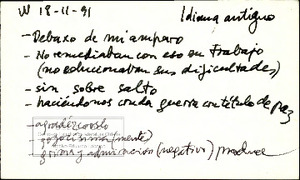 W 18-11-91 Idioma antiguo
- Debaxo de mi amparo
- No remediaban con eso su trabajo
(no solucionaban sus dificultades)
- sin sobre salto
- haciéndonos cruda guerra con título de paz
- agradézcooslo
- (mente)
- grima y admiración (negativo) produce